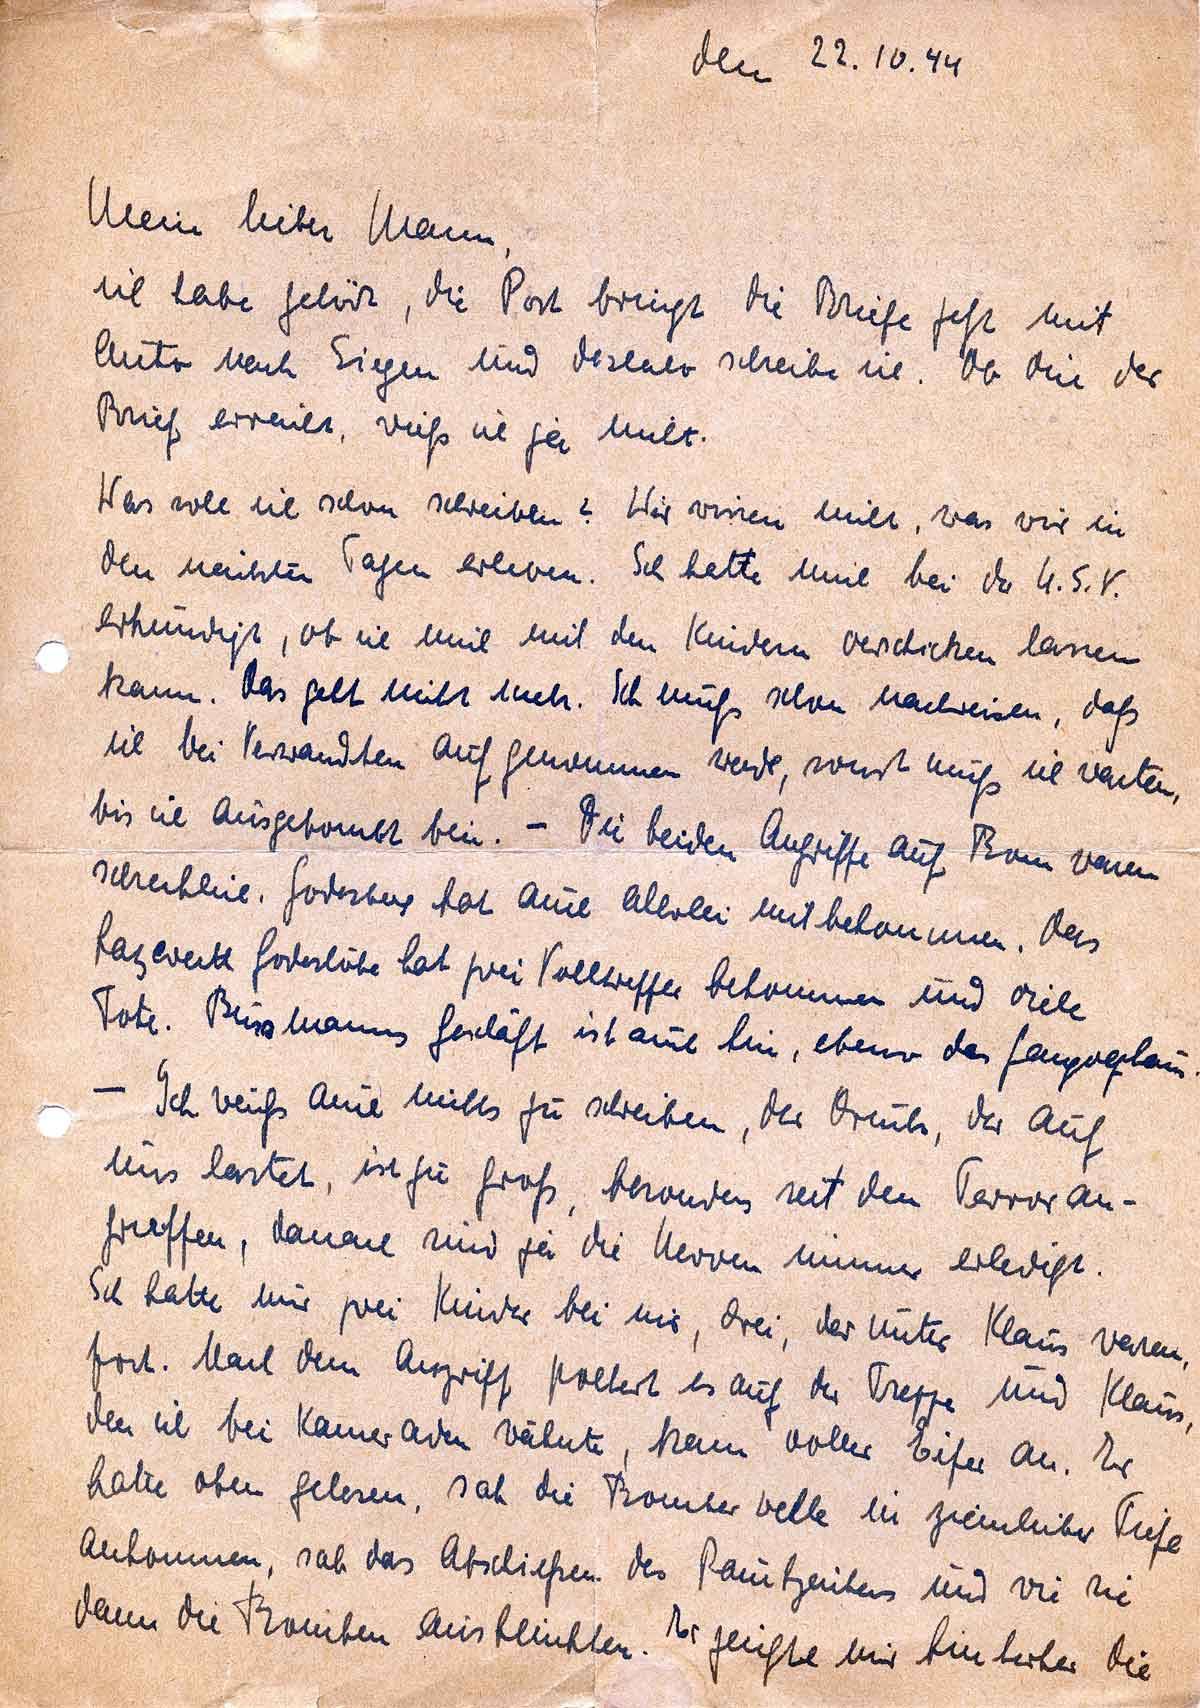 den 22.10.44
Mein lieber Mann,
ich habe gehört, die Post bringt die Briefe jetzt mit
Auto nach Siegen und deshalb schreibe ich. Ob dich der
Brief erreicht, weiß ich ja nicht.
Was soll ich schon schreiben? Wir wissen nicht, was wir in
den nächsten Tagen erleben. Ich hatte mich bei der N.S.V.
erkundigt, ob ich mich mit den Kindern verschicken lassen
kann. Das geht nicht mehr. Ich muß schon nachweisen, daß
ich bei Verwandten aufgenommen werde, sonst muß ich warten,
bis ich ausgebombt bin. – Die beiden Angriffe auf Bonn waren
schrecklich. Godesberg hat auch allerlei mitbekommen. Das
Lazarett Godeshöhe hat zwei Volltreffer bekommen und viele
Tote. Bussmanns Geschäft ist auch hin, ebenso das
– Ich weiß auch nichts zu schreiben, der Druck, der auf
uns lastet, ist zu groß, besonders seit den Terroran-
griffen, danach sind ja die Nerven immer erledigt.
Ich hatte nur zwei Kinder bei mir, drei, darunter Klaus waren
fort. Nach dem Angriff poltert es auf der Treppe und Klaus,
den ich bei Kameraden wähnte, kam voller Eifer an. Er
hatte oben gelesen, sah die Bomberwelle in ziemlicher Tiefe
ankommen, sah das Abschießen des Rauchzeichens und wie sie
dann die Bomben ausklinkten. Er zeigte mir hinterher die